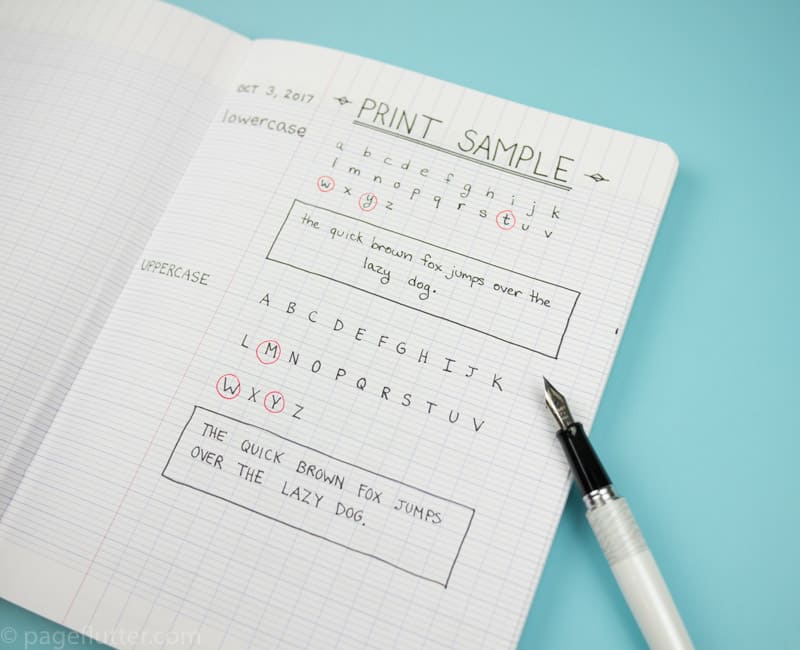 OCT 3, 2017
PRINT SAMPLE
lowercase
a b c d e f g h i j k
l m n o p q r s t u v
w x y z
the quick brown fox jumps over the
lazy dog.
UPPERCASE
A B C D E F G H I J K
L M N O P Q R S T U V
W X Y Z
THE QUICK BROWN FOX JUMPS
OVER THE LAZY DOG.
© pageflutter.com